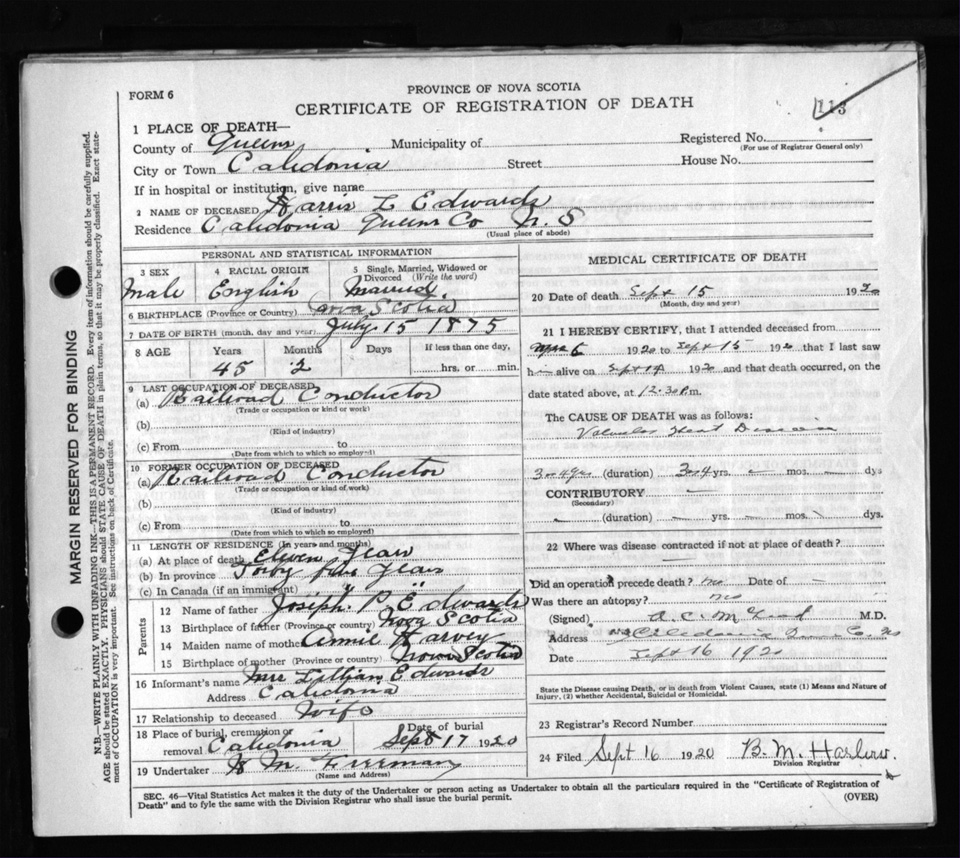 PROVINCE OF NOVA SCOTIA
FORM 6
CERTIFICATE OF REGISTRATION OF DEATH
113
1 PLACE OF DEATH—
County of Queens Municipality of Registered No.
(For use of Registrar General only)
City or Town Caledonia Street House No.
If in hospital or institution, give name
2 NAME OF DECEASED Harris L Edwards
Residence Caledonia Queens Co N. S
(Usual place of abode)
PERSONAL AND STATISTICAL INFORMATION
3 SEX 4 RACIAL ORIGIN 5 Single, Married, Widowed or Divorced (Write the word)
Male English Married
6 BIRTHPLACE (Province or Country) Nova Scotia
7 DATE OF BIRTH (month, day and year) July 15 1875
8 AGE Years Months Days If less than one day,
45 2 hrs. or min.
9 LAST OCCUPATION OF DECEASED
(a) Railroad Conductor
(Trade or occupation or kind or work)
(b)
(Kind of industry)
(c) From to
(Date from which to which so employed)
10 FORMER OCCUPATION OF DECEASED
(a) Railroad Conductor
(Trade or occupation or kind of work)
(b)
(Kind of industry)
(c) From to
(Date from which to which so employed)
11 LENGTH OF RESIDENCE (In years and months)
(a) At place of death Eleven Years
(b) In province Forty five Years
(c) In Canada (if an immigrant) " "
Parents
12 Name of father Joseph P. Edwards
13 Birthplace of father (Province or country) Nova Scotia
14 Maiden name of mother Annie Harvey
15 Birthplace of mother (Province or country) Nova Scotia
16 Informant's name Mrs Lillian Edwards
Address Caledonia
17 Relationship to deceased Wife
18 Place of burial, cremation or removal Caledonia Date of burial Sept 17 1920
19 Undertaker H M Freeman
(Name and Address)
MEDICAL CERTIFICATE OF DEATH
20 Date of death Sept 15 1920
(Month, day and year)
21 I HEREBY CERTIFY, that I attended deceased from
6 1920 to Sept 15 1920 that I last saw
him alive on Sept 14 1920 and that death occurred, on the
date stated above, at 12.30 P.m.
The CAUSE OF DEATH was as follows:
Valvular Heart Disease
3 or 4 yrs (duration) 3 or 4 yrs. — mos. — dys
CONTRIBUTORY —
(Secondary)
— (duration) — yrs. — mos. dys.
22 Where was disease contracted if not at place of death?
Did an operation precede death? no Date of —
Was there an autopsy? no
(Signed) A. C. M. D.
Address Caledonia Co. NS
Date Sept 16 1920
State the Disease causing Death, or in death from Violent Causes, state (1) Means and Nature of
Injury, (2) whether Accidental, Suicidal or Homicidal.
23 Registrar's Record Number
24 Filed Sept 16 1920 B. M. Harlow.
Division Registrar
SEC. 46—Vital Statistics Act makes it the duty of the Undertaker or person acting as Undertaker to obtain all the particulars required in the "Certificate of Registration of
Death" and to fyle the same with the Division Registrar who shall issue the burial permit. (OVER)
MARGIN RESERVED FOR BINDING
N.B.—WRITE PLAINLY WITH UNFADING INK—THIS IS A PERMANENT RECORD. Every item of information should be carefully supplied.
AGE should be stated EXACTLY. PHYSICIANS should STATE CAUSE OF DEATH in plain terms, so that it may be properly classified. Exact state-
ment of OCCUPATION is very important. See instructions on back of Certificate.